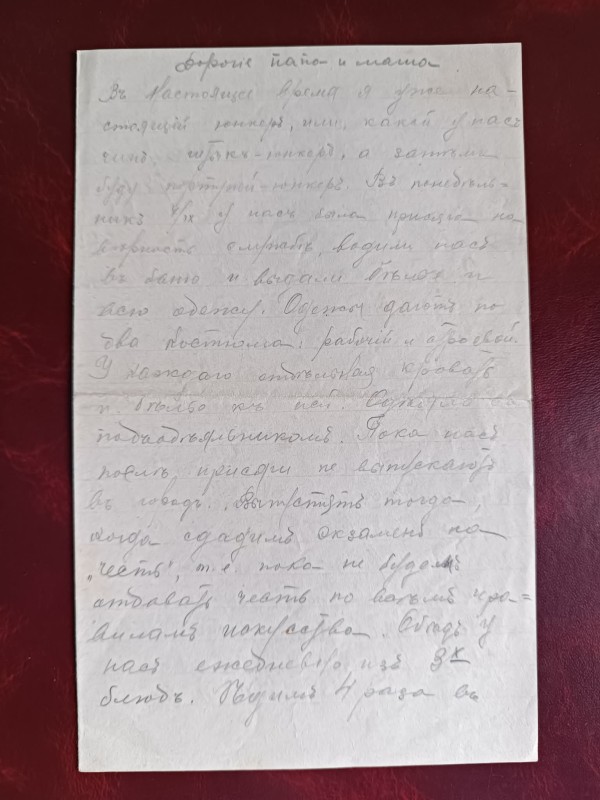 Дорогие папа и мама
Въ настоящее время я уже на-
стоящій юнкеръ, или, какой у насъ
чинъ, штыкъ-юнкеръ, а затѣмъ
буду портупей-юнкеръ. Въ понедѣль-
никъ 4/IX у насъ была присяга на
вѣрность службѣ, водили насъ
въ баню и выдали бѣлье и
всю одежу. Одежи даютъ по
два костюма: рабочій и строевой.
У каждаго отдѣльная кровать
и бѣлье къ ней. Одѣяло съ
пододѣяльникомъ. Пока насъ
послѣ присяги не выпускаютъ
въ городъ. Выпустятъ тогда,
когда сдадимъ экзаменъ на
„честь", т.е пока не будемъ
отдавать честь по всѣмъ пра=
виламъ искусства. Обѣдъ у
насъ ежедневно изъ 3х
блюдъ. Кушаемъ 4 раза въ